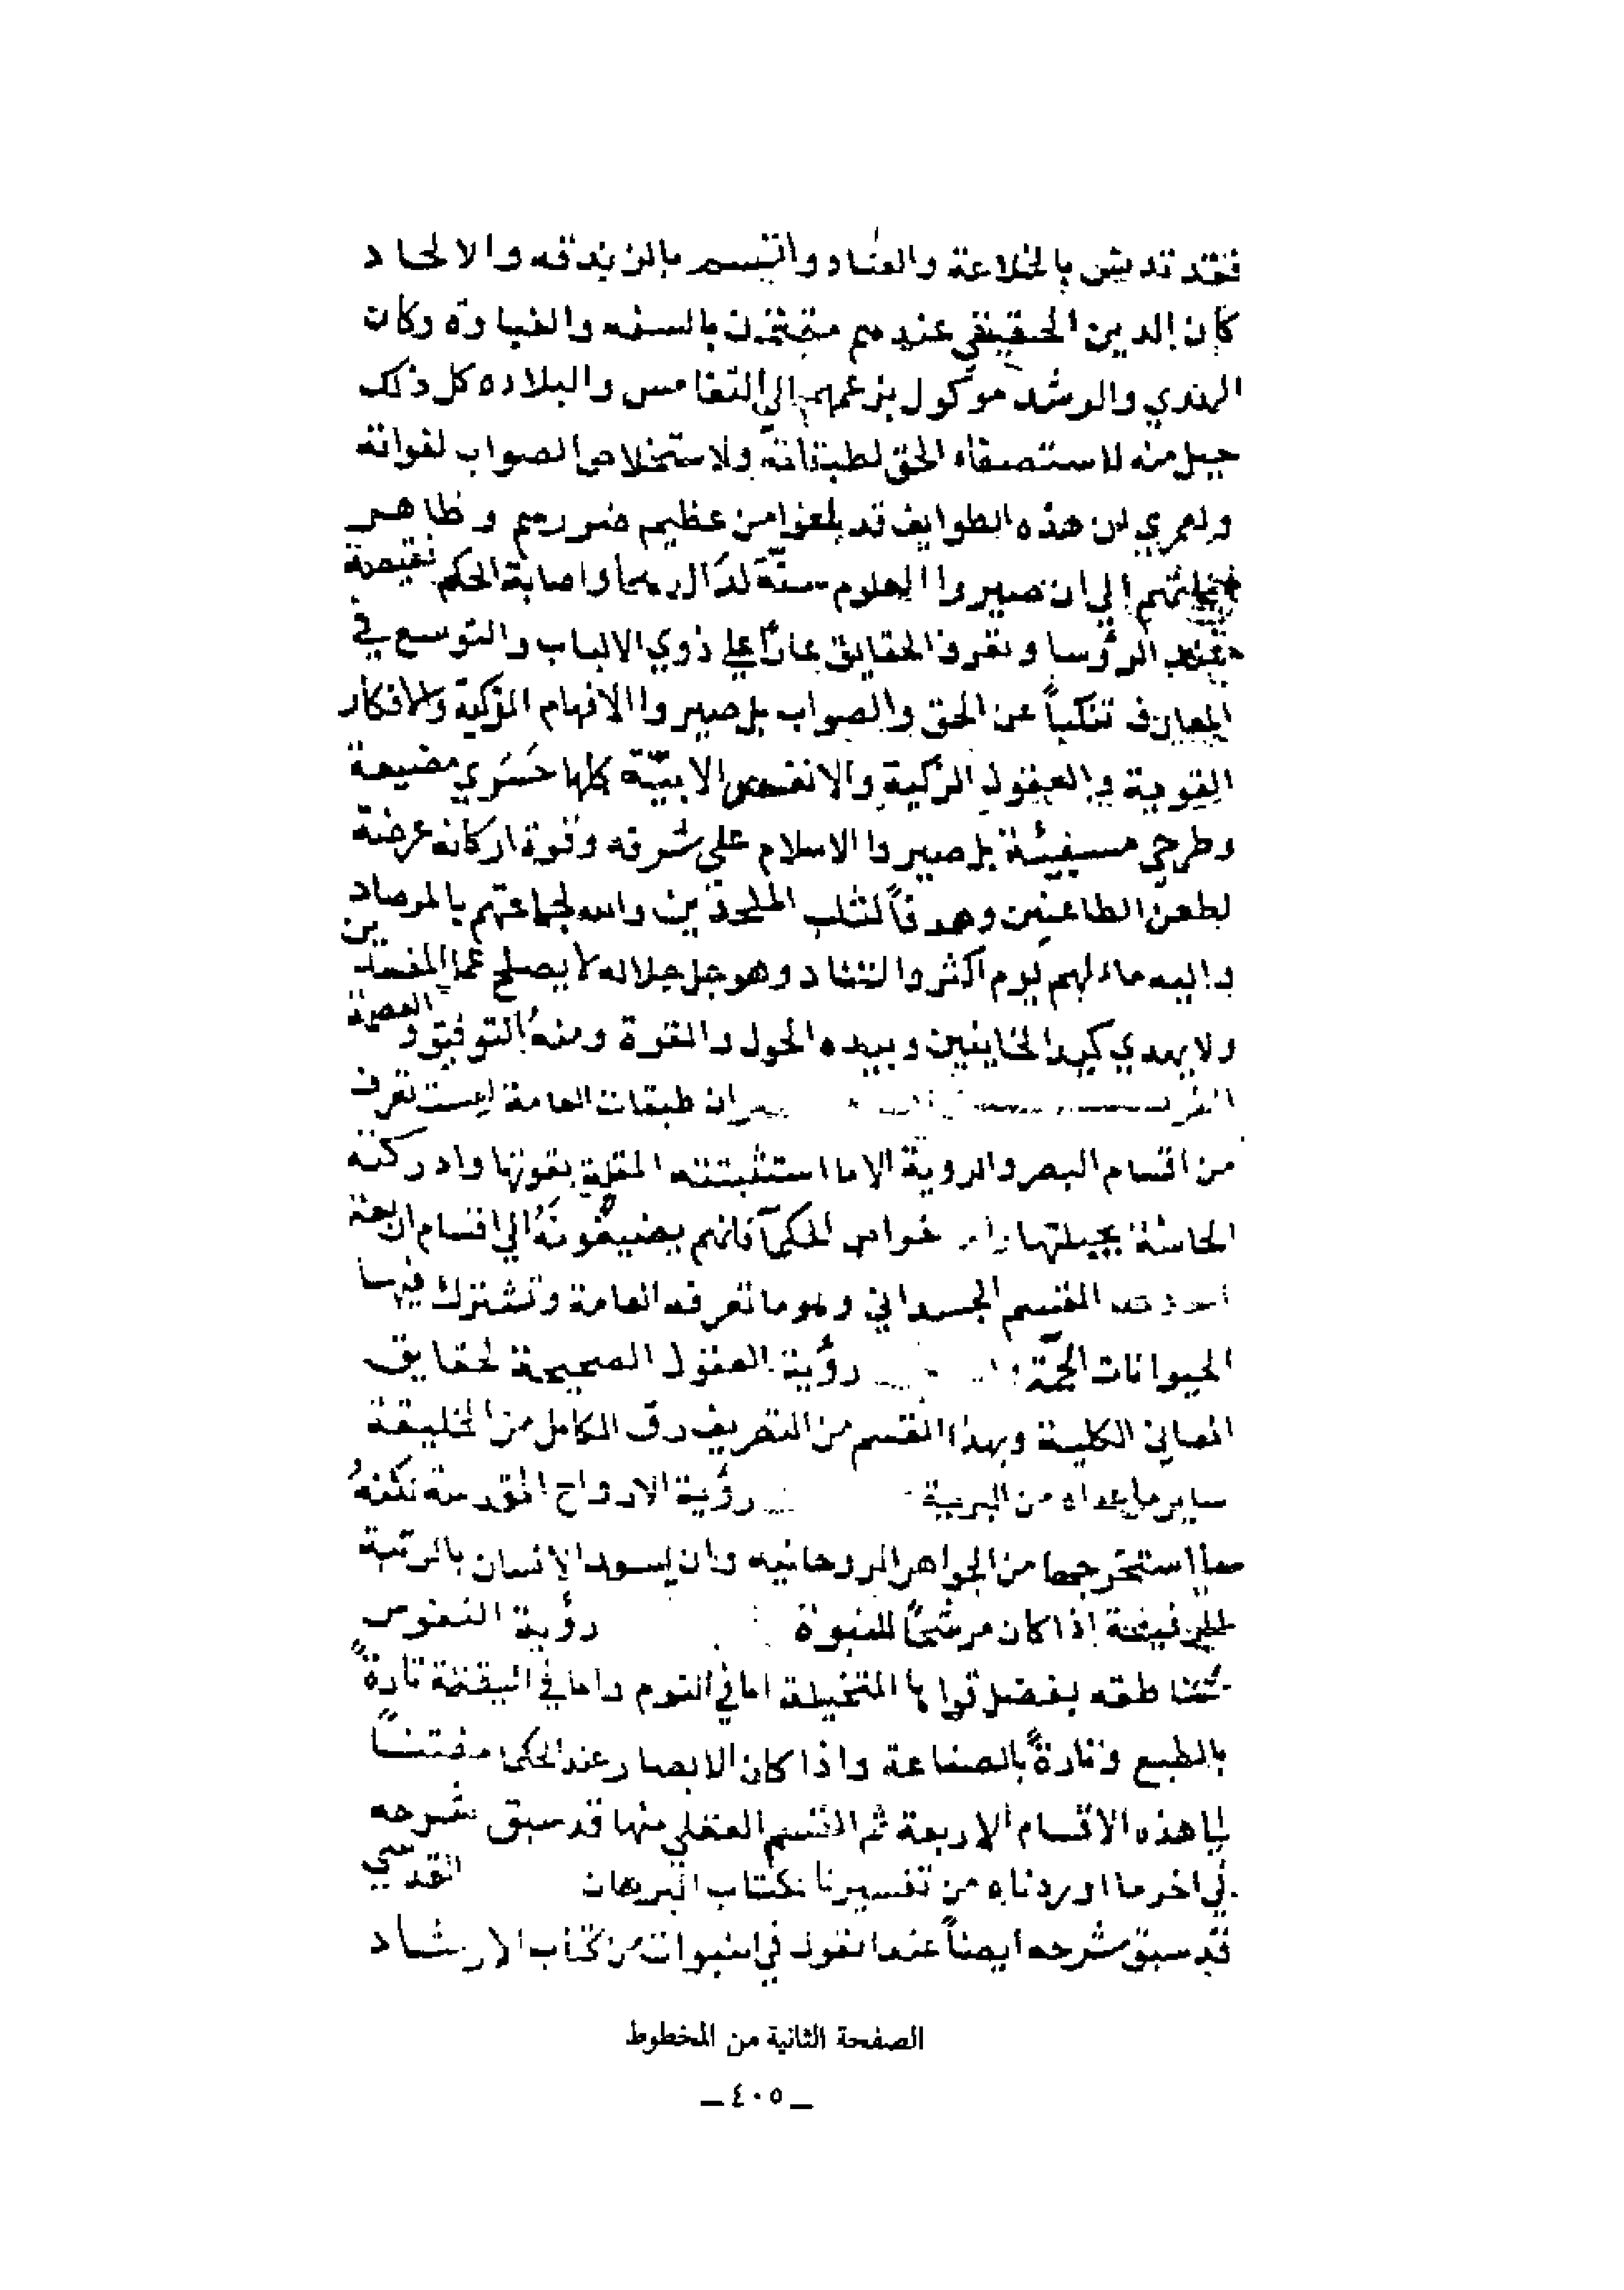 فقد تدنس بالخلاعة والعناد واتسم بالزندقه والالحاد
كان الدين الحقيقي عندهم مقترن بالسفه والغباوة وكان
الهدي والرشد موكول بزعمهم الي التقاعس والبلاده كل ذلك
جهل منه لاستصفاء الحق لطبقاته ولاستخلاص الصواب لفواته
ولعمري ان هذه الطوايف قد بلغوا من عظيم ضررهم وظاهر
الي ان صيروا العلوم واصابة الحكم نقيصة
عند الرؤسا وتعرف الحقايق عاراً علي ذوي الالباب والتوسع في
المعارف تنكباً عن الحق والصواب بل صيروا الافهام الذكية والافكار
القوية والعقول الزكية والانفس الابيّة كلها حَسَري مضيعة
وطرحي مسيئة بل صيروا الاسلام علي شرفه وقوة اركانه عرضة
لطعن الطاعنين وهدفاً لثلب الملحدين والله لجماعتهم بالمرصاد
واليه مآلهم يوم التناد وهو جل جلاله لا يصلح عمل المفسدين
ولا يهدي كيد الخاينين وبيده الحول والقوة ومنهُ التوفيق والعصمة
ان طبقات العامة ليست تعرف
من اقسام البصر والروية الا ما استثبتته المقلة بقوتها وادركته
الحاسّة بجبلتها خواص الحكمآ فانهم يضيفونَهُ الي اقسام اربعة
القسم الجسداني وهو ما تعرفه العامة وتشترك فيها
الحيوانات الجمّة رؤية العقول الصحيحة لحقايق
المعاني الكلية وبهذا القسم من التعريف رق الكامل من الخليقة
ساير ما عداه من البرية رؤية الارواح المقدسة
استخرجها من الجواهر الروحانيه وان يسعد الانسان بالرتبة
اذا كان مرشحاً للنبوة رؤية النفوس
الناطقه بفضل قواها المتخيلة اما في النوم واما في اليقظة تارةً
بالطبع وتارةً بالصناعة واذا كان الابصار عند الحكما مفتناً
الي هذه الاقسام الاربعة ثم القسم العقلي منها قد سبق شرحه
في اخر ما اوردناه من تفسيرنا لكتاب البرهان القدسي
قد سبق شرحه ايضاً عند القول في النبوات من كتاب الارشاد
الصفحة الثانية من المخطوط
— ٤٠٥ —